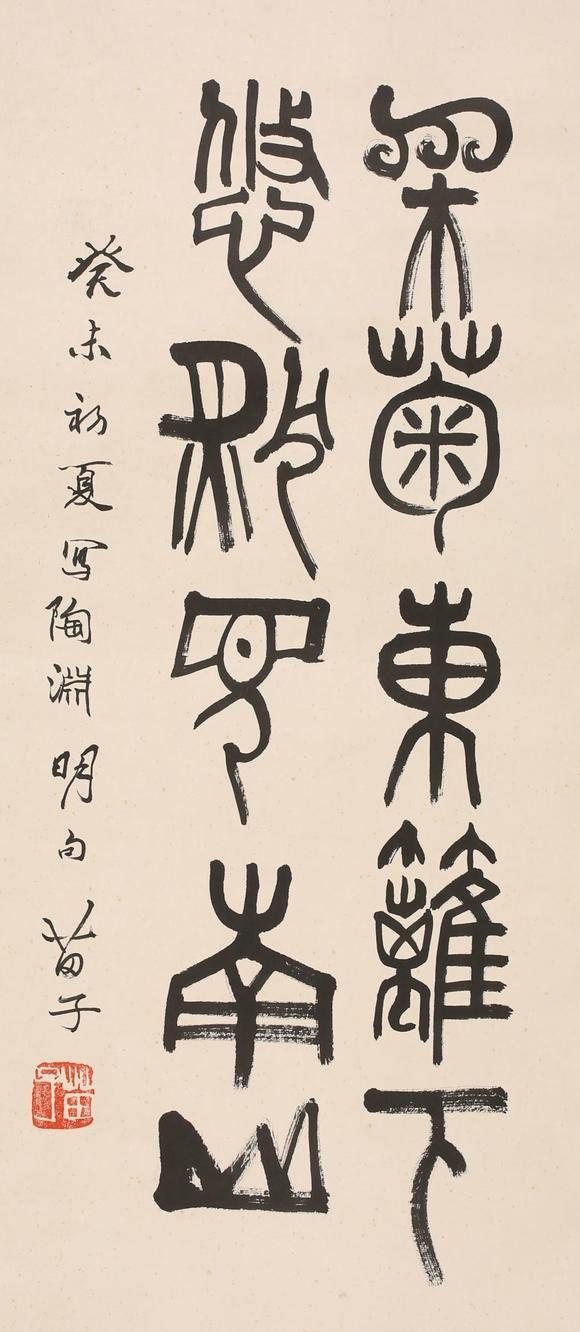 采菊東籬下
悠然見南山
癸未初夏写陶淵明句 苗子
苗子